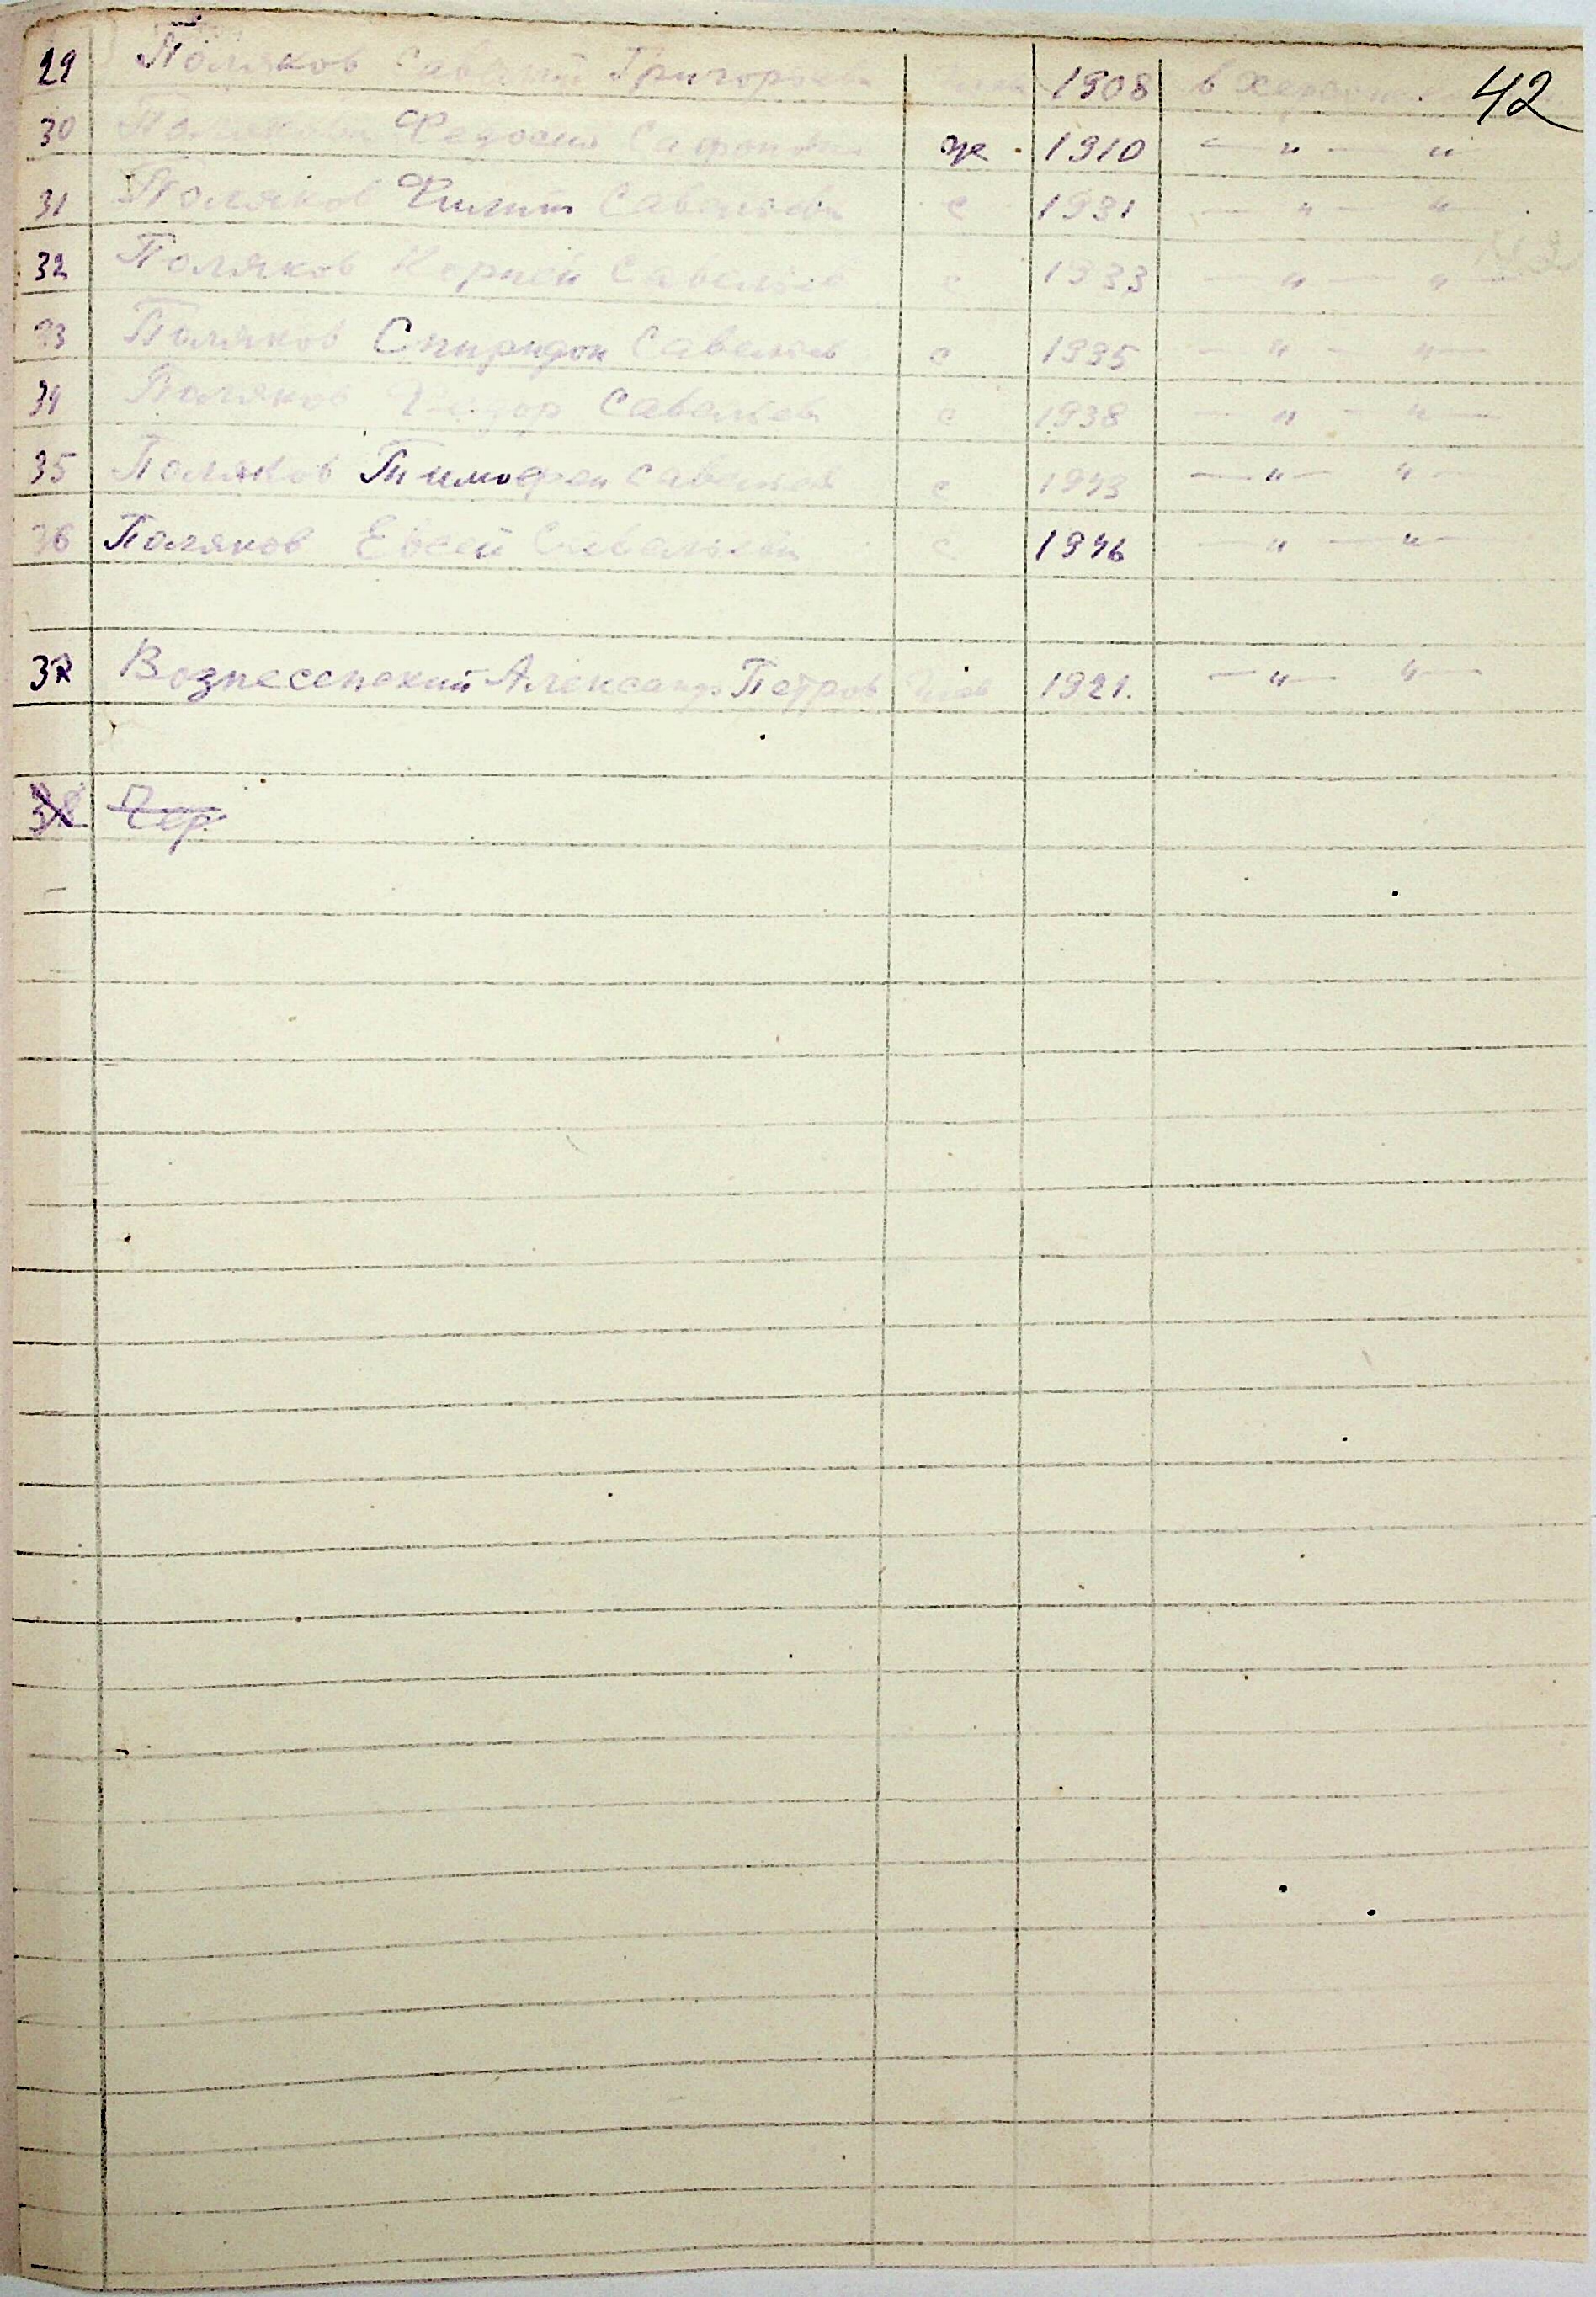 42
29 Поляков Савелий Григорьев 1908 в
30 Федосия Сафонов ж 1910 — " — "
31 Поляков Филипп Савельев с 1931 — " — " —
32 Поляков Корней Савельев с 1933 — " — " —
33 Поляков Спиридон Савельев с 1935 — " — " —
34 Поляков Савельев с 1938 — " — " —
35 Поляков Тимофей Савельев с 1943 — " — " —
36 Поляков Евсей Савельев с 1946 — " — " —
37 Вознесенский Александр Петров 1921. — " — " —
38 Чер